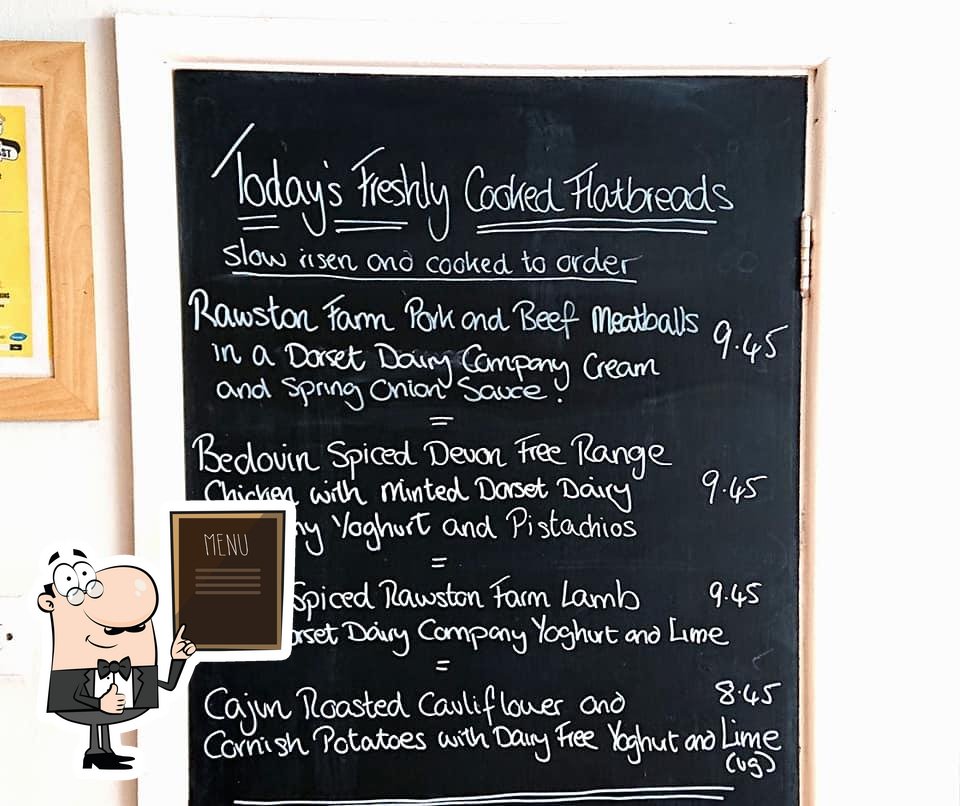 Today's Freshly Cooked Flatbreads
Slow risen and cooked to order
Rawston Farm Pork and Beef Meatballs 9.45
in a Dorset Dairy Company Cream
and Spring Onion Sauce.
=
Bedouin Spiced Devon Free Range
Chicken with Minted Dorset Dairy 9.45
ny Yoghurt and Pistachios
=
Spiced Rawston Farm Lamb 9.45
orset Dairy Company Yoghurt and Lime
=
Cajun Roasted Cauliflower and 8.45
Cornish Potatoes with Dairy Free Yoghut and Lime
(vg)
MENU